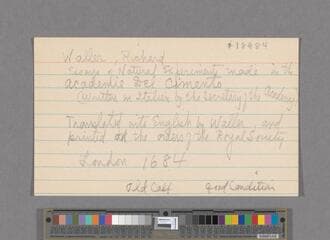 #18484
Waller, Richard
Essays of Natural Experiments made in the
Academie Del Cimento
(Written in Italian by the Secretary of the Academy)
Translated into English by Waller, and
printed at the order of the Royal Society
London 1684
Old Calf good Condition